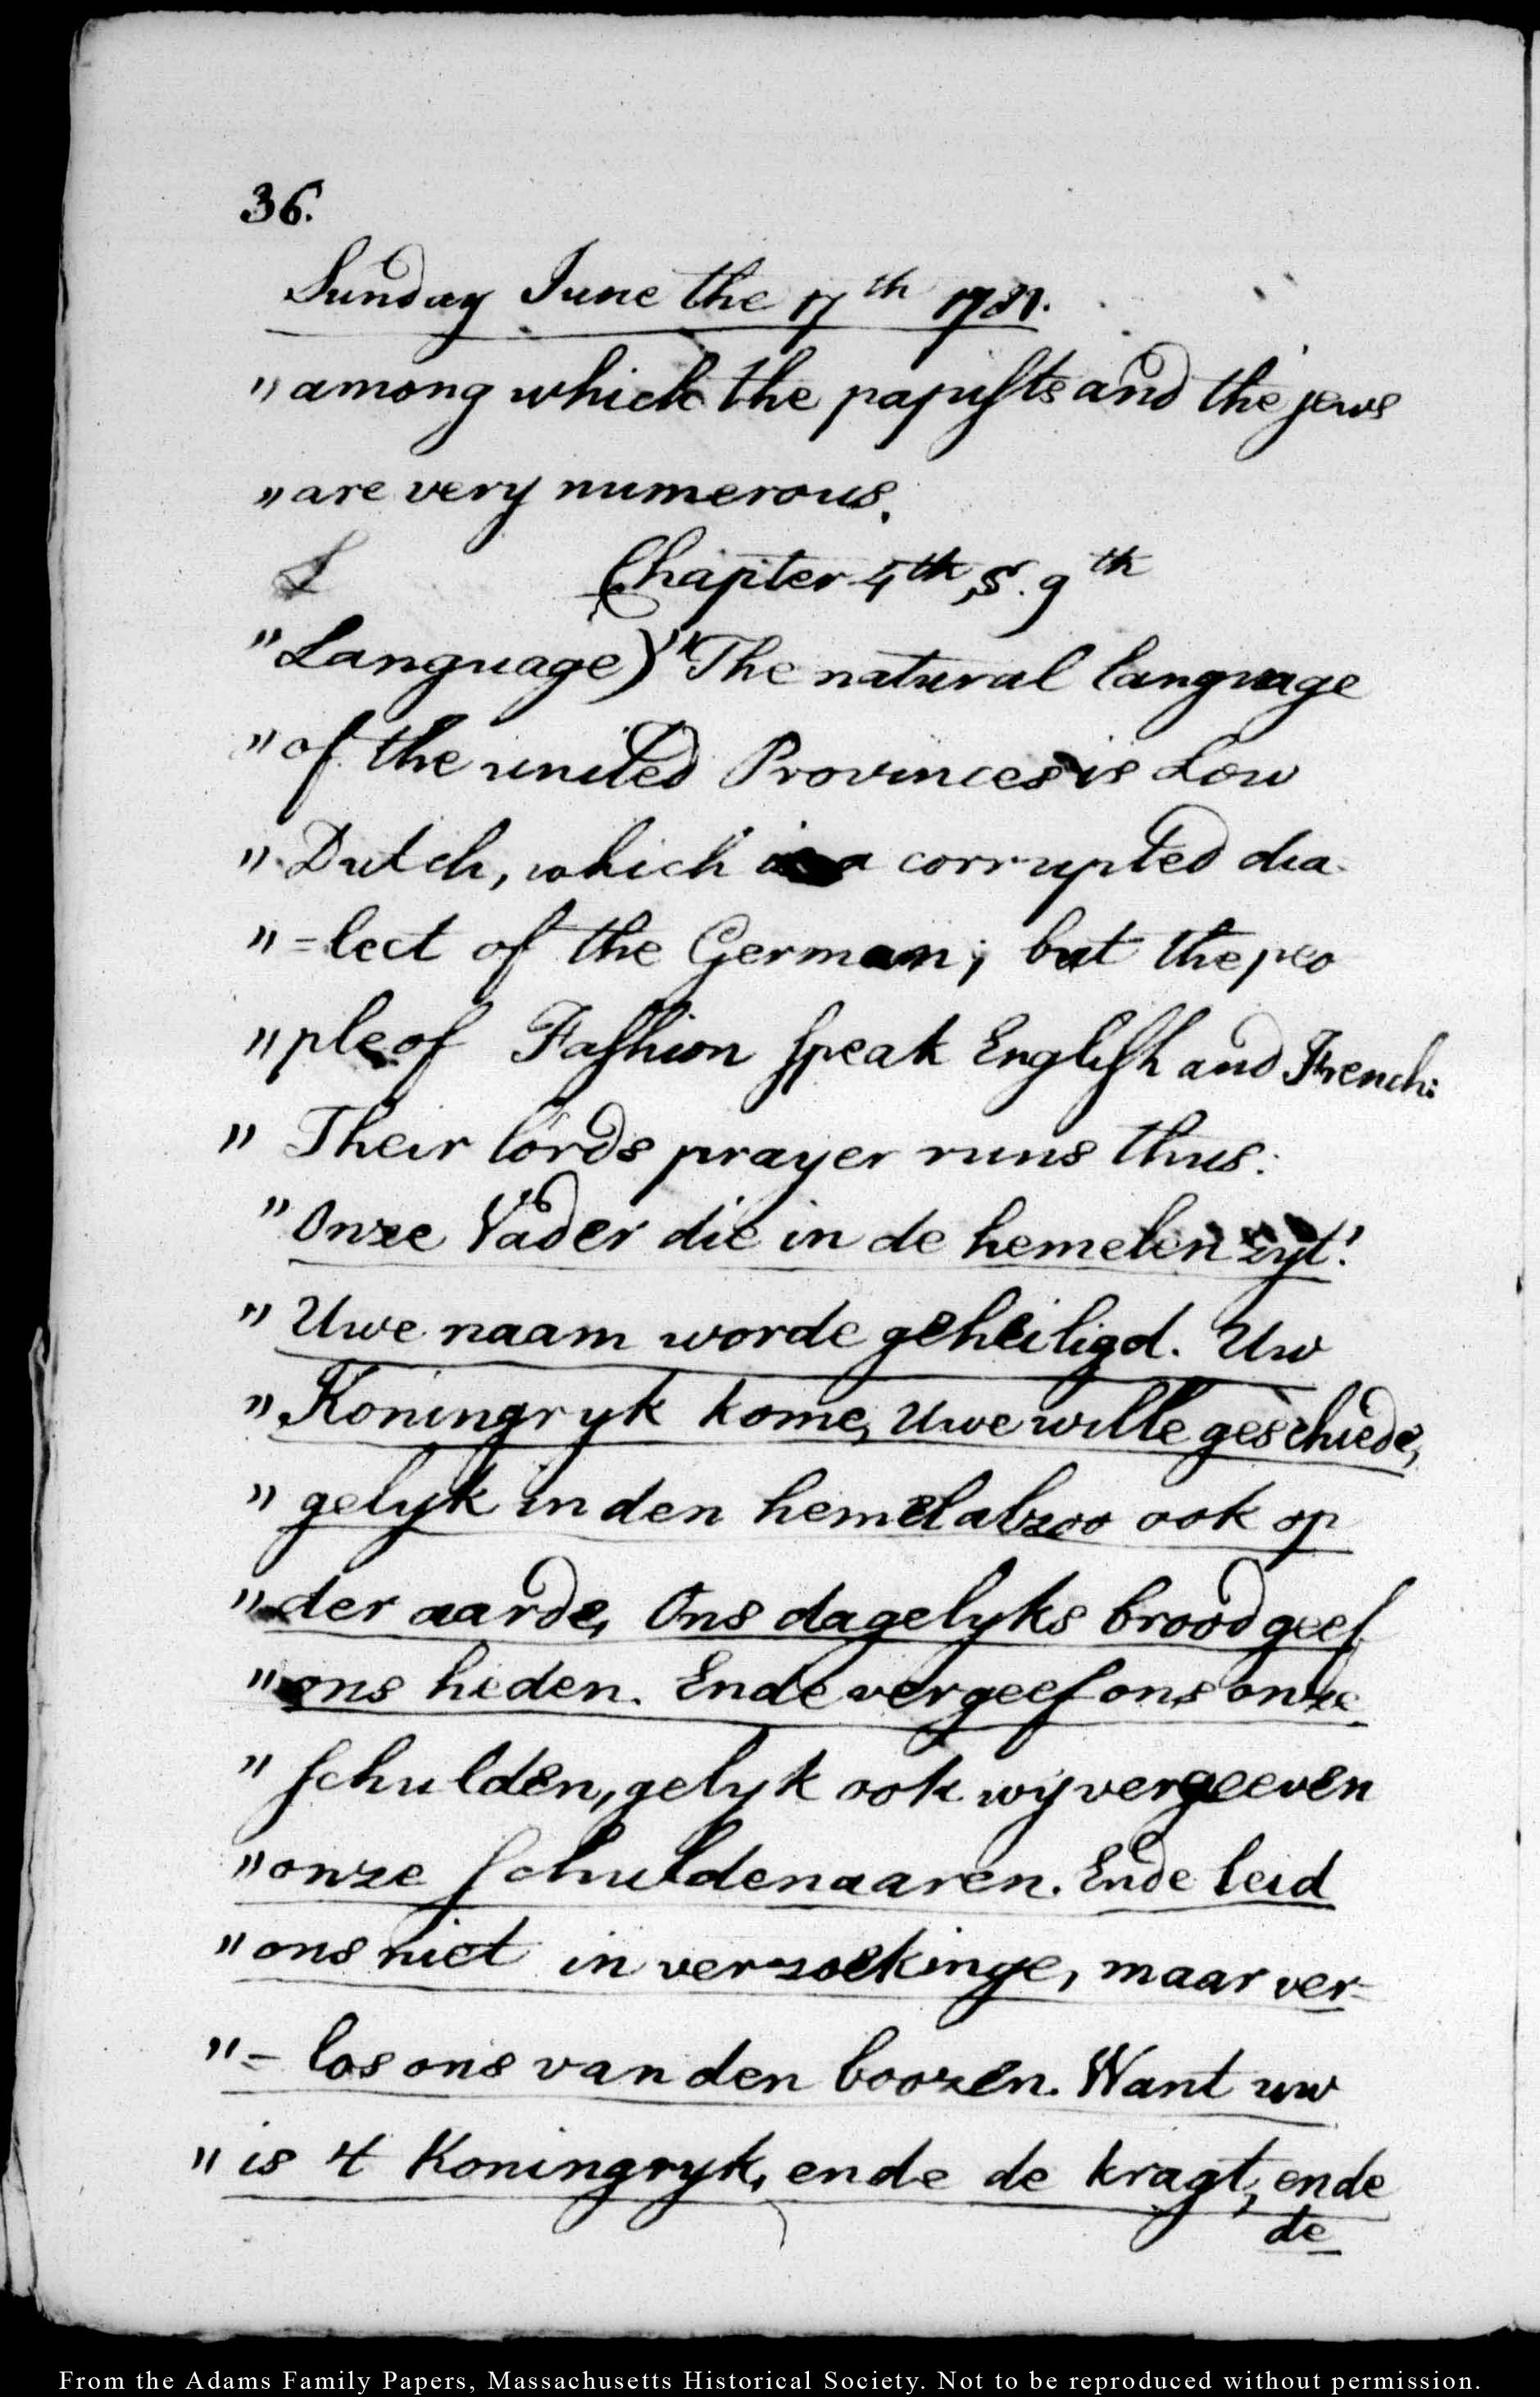 36.
Sunday June the 17th 1781.
" among which the papiſts and the jews
" are very numerous.
Chapter 4th, S. 9th
" Language)" The natural language
" of the united Provinces is Low
" Dutch, which is a corrupted dia
" =lect of the German; but the peo
" ple of Faſhion ſpeak Engliſh and French:
" Their lords prayer runs thus:
" Onze Vader die in de hemelen zyt!
" Uwe naam worde geheiligd. Uw
" Koningryk kome, Uwe wille geschiede,
" gelyk in den hemel alzoo ook op
" der aarde, Ons dagelyks brood geef
" ons heden. Ende vergeef ons onze
" ſchulden, gelyk ook wy vergeeven
" onze ſchuldenaaren. Ende leid
" ons niet in verzoekinge, maar ver=
" = los ons van den boozen. Want uw
" is 't Koningryk, ende de kragt, ende
de
From the Adams Family Papers, Massachusetts Historical Society. Not to be reproduced without permission.